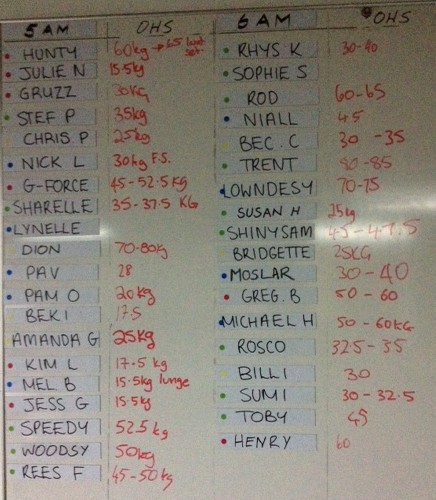 5 AM OHS
HUNTY 60kg → 65 last set.
JULIE N 15.5kg
GRUZZ 30KG
STEF P 35kg
CHRIS P 25kg
NICK L 30kg F.S.
G-FORCE 45-52.5KG
SHARELLE 35-37.5 KG
LYNELLE
DION 70-80kg
PAV 28
PAM O 20kg
BEK I 17.5
AMANDA G 25kg
KIM L 17.5 kg
MEL B 15.5kg lunge
JESS G 15.5kg
SPEEDY 52.5 kg
WOODSY 50kg
REES F 45-50kg
6 AM OHS
RHYS K 30-40
SOPHIE S
ROD 60-65
NIALL 45
BEC. C 30 -35
TRENT 80-85
LOWNDESY 70-75
SUSAN H 25kg
SHINYSAM 45-47.5
BRIDGETTE 25KG
MOSLAR 30-40
GREG. B 50 - 60
MICHAEL H 50 - 60KG
ROSCO 32.5 - 35
BILLI 30
SUMI 30 - 32.5
TOBY 45
HENRY 60